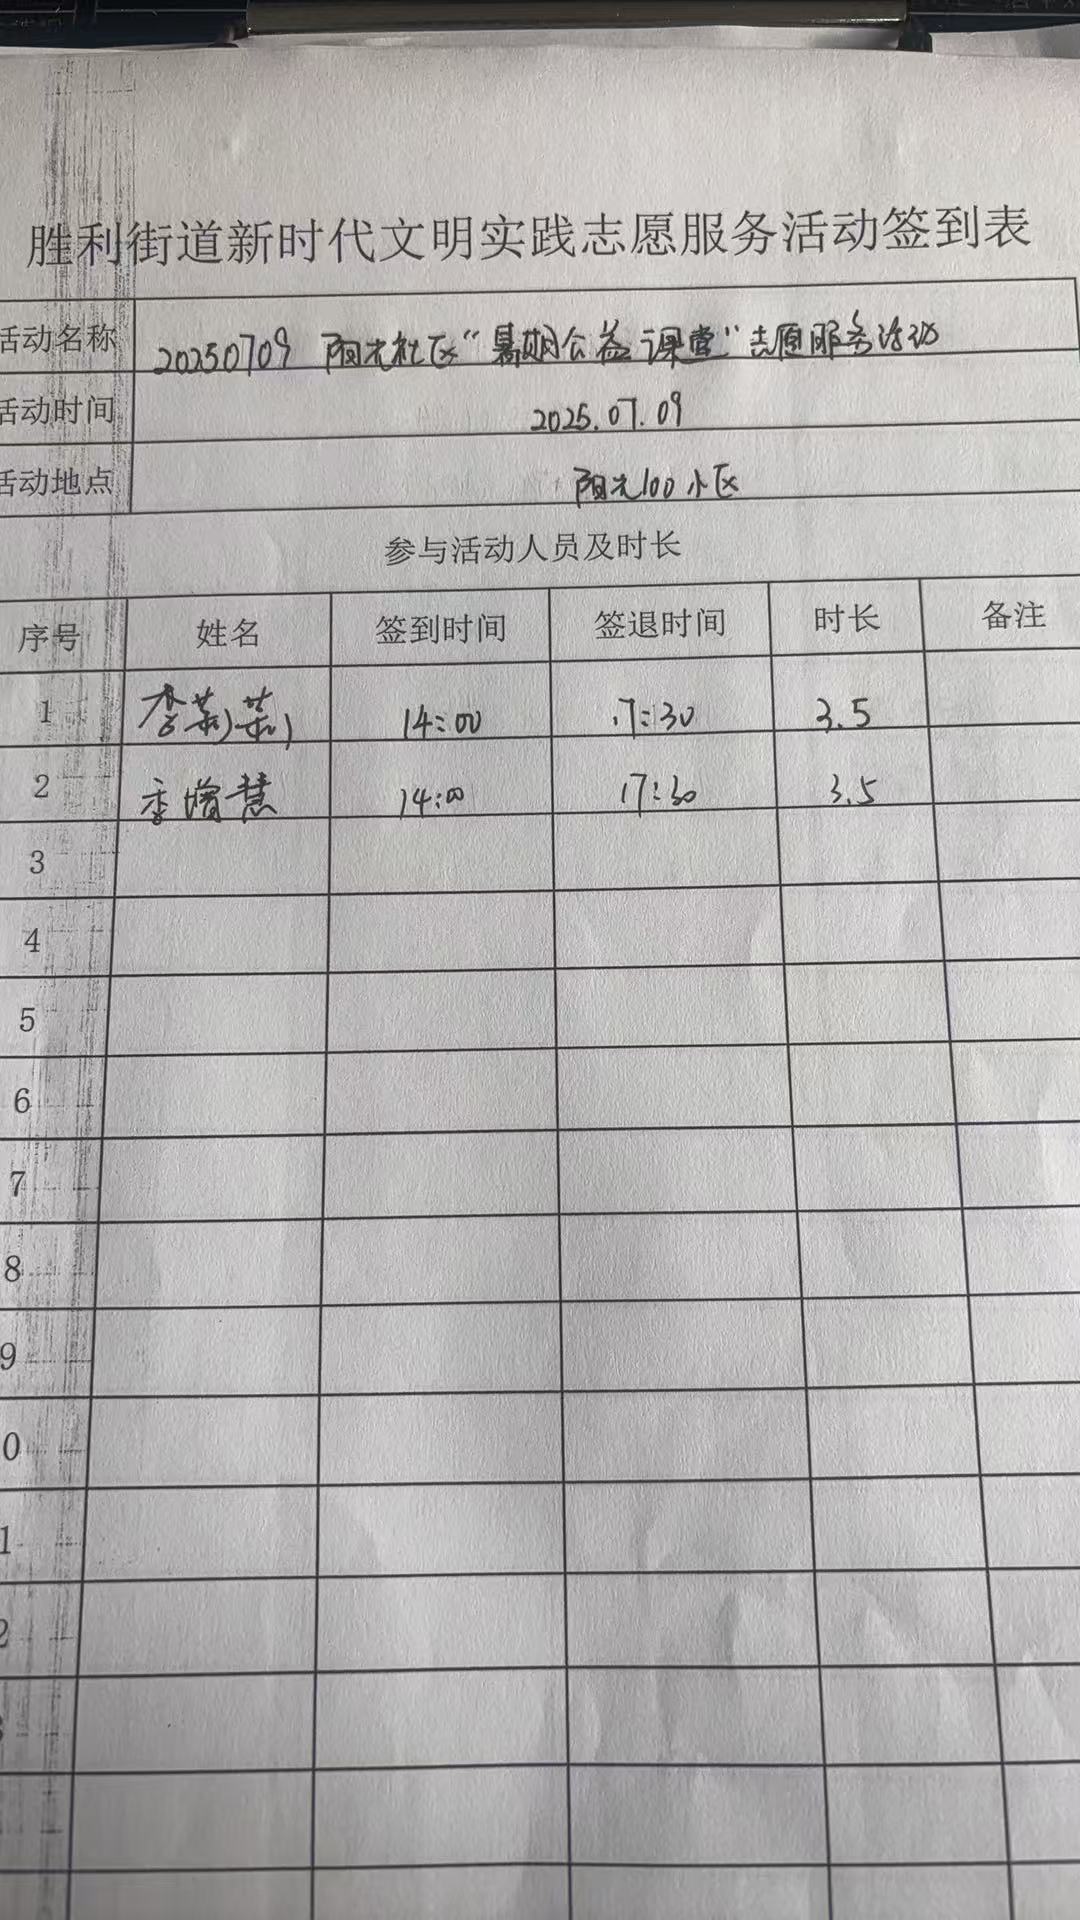 胜利街道新时代文明实践志愿服务活动签到表
活动名称 20250709 阳光社区“暑期公益课堂”志愿服务活动
活动时间 2025.07.09
活动地点 阳光100小区
参与活动人员及时长
序号 姓名 签到时间 签退时间 时长 备注
1 李莉莉 14:00 17:30 3.5
2 李增慧 14:00 17:30 3.5
3
4
5
6
7
8
9
0
1
2
3